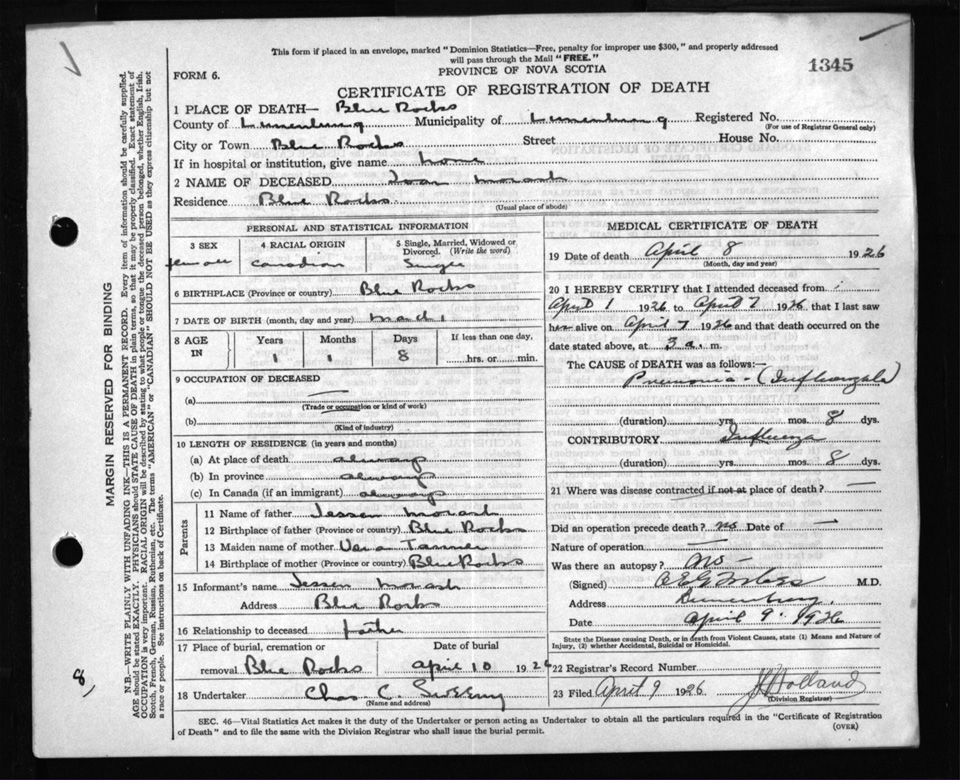 This form if placed in an envelope, marked "Dominion Statistics—Free, penalty for improper use $300," and properly addressed
will pass through the Mail "FREE."
1345
FORM 6.
PROVINCE OF NOVA SCOTIA
CERTIFICATE OF REGISTRATION OF DEATH
1 PLACE OF DEATH— Blue Rocks
County of Lunenburg Municipality of Lunenburg Registered No.
(For use of Registrar General only)
City or Town Blue Rocks Street House No.
If in hospital or institution, give name home
2 NAME OF DECEASED Joan Morash
Residence Blue Rocks
(Usual place of abode)
PERSONAL AND STATISTICAL INFORMATION
3 SEX 4 RACIAL ORIGIN 5 Single, Married, Widowed or
Divorced. (Write the word)
female Canadian Single
6 BIRTHPLACE (Province or country) Blue Rocks
7 DATE OF BIRTH (month, day and year) March 1
8 AGE IN Years Months Days If less than one day,
1 1 8 hrs. or min.
9 OCCUPATION OF DECEASED
(a) —
(Trade or occupation or kind of work)
(b)
(Kind of industry)
10 LENGTH OF RESIDENCE (in years and months)
(a) At place of death always
(b) In province always
(c) In Canada (if an immigrant) always
Parents
11 Name of father Jessen Morash
12 Birthplace of father (Province or country) Blue Rocks
13 Maiden name of mother Vera Tanner
14 Birthplace of mother (Province or country) Blue Rocks
15 Informant's name Jessen Morash
Address Blue Rocks
16 Relationship to deceased father
17 Place of burial, cremation or Date of burial
removal Blue Rocks April 10 1926
18 Undertaker Chas. C. Sweeny
(Name and address)
MEDICAL CERTIFICATE OF DEATH
19 Date of death April 8 1926
(Month, day and year)
20 I HEREBY CERTIFY that I attended deceased from
April 1 1926 to April 7 1926 that I last saw
her alive on April 7 1926 and that death occurred on the
date stated above, at 3 a. m.
The CAUSE OF DEATH was as follows:
Pneumonia - (Influenzal)
(duration) yrs. mos. 8 dys.
CONTRIBUTORY Influenza
(duration) yrs. mos. 8 dys.
21 Where was disease contracted if not at place of death? —
Did an operation precede death? no Date of —
Nature of operation —
Was there an autopsy? no
(Signed) M.D.
Address Lunenburg.
Date April 9 1926
State the Disease causing Death, or in death from Violent Causes, state (1) Means and Nature of
Injury, (2) whether Accidental, Suicidal or Homicidal.
22 Registrar's Record Number
23 Filed April 9 1926 Holland
(Division Registrar)
SEC. 46—Vital Statistics Act makes it the duty of the Undertaker or person acting as Undertaker to obtain all the particulars required in the "Certificate of Registration
of Death" and to file the same with the Division Registrar who shall issue the burial permit.
(OVER)
MARGIN RESERVED FOR BINDING
N.B.—WRITE PLAINLY WITH UNFADING INK—THIS IS A PERMANENT RECORD. Every item of information should be carefully supplied.
AGE should be stated EXACTLY. PHYSICIANS should STATE CAUSE OF DEATH in plain terms, so that it may be properly classified. Exact statement of
OCCUPATION is very important. RACIAL ORIGIN will be described by stating to what people or tongue the deceased person belonged, whether English, Irish,
Scotch, French, German, Russian, Ruthenian, etc. The terms "AMERICAN" or "CANADIAN" SHOULD NOT BE USED as they express citizenship but not
a race or people. See instructions on back of Certificate.
8,